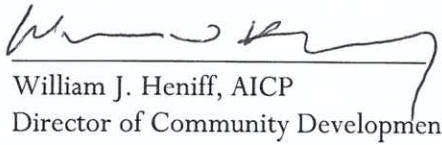 William J. Heniff, AICP
Director of Community Developmen